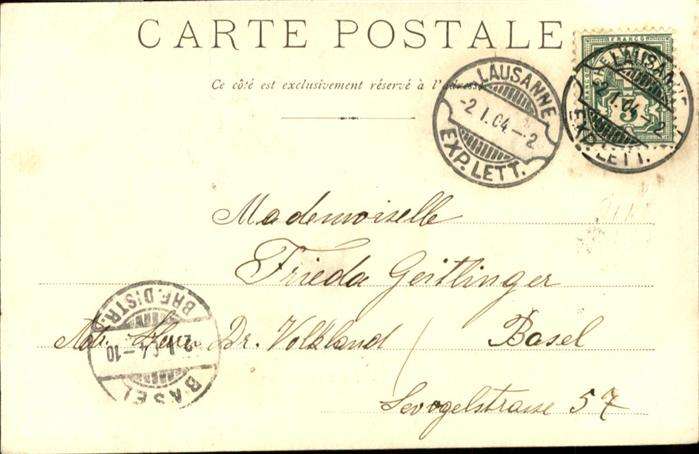 CARTE POSTALE
Ce côté est exclusivement réservé à l'adresse
LAUSANNE
-2.I.04--2
EXP. LETT.
FRANCO
LAUSANNE
I.04 -2
EXP. LETT.
Mademoiselle
Frieda Geitlinger
Adr. Herr Dr. Volkland / Basel
Sevogelstrasse 57
BRF. DISTR.
2.I.04--10
BASEL